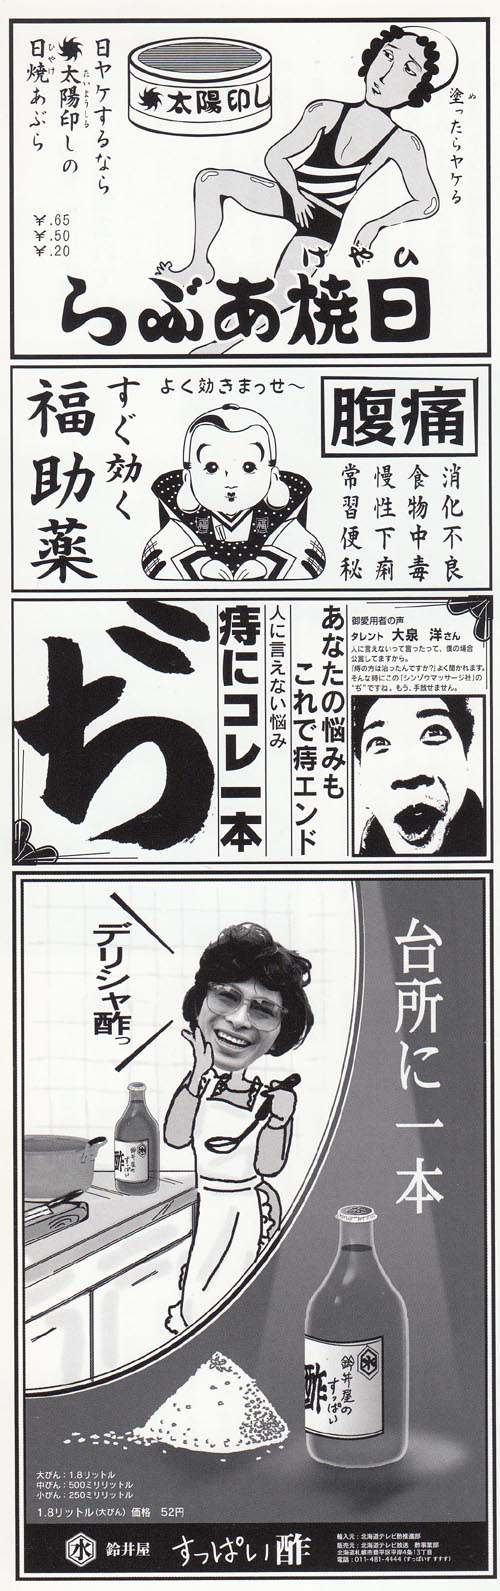 塗ったらヤケる
太陽印し
日ヤケするなら
太陽印しの
日焼あぶら
たいようじるし
ひやけ
¥.65
¥.50
¥.20
ひやけ
日焼あぶら
腹痛
消化不良
食物中毒
慢性下痢
常習便秘
よく効きまっせ～
すぐ効く
福助薬
御愛用者の声
タレント 大泉 洋さん
人に言えないって言ったって、僕の場合
公言してますから。
「痔の方は治ったんですか?」よく聞かれます。
そんな時にこの「シンゾウマッサージ社」の
“ぢ”ですね。もう、手放せません。
あなたの悩みも
これで痔エンド
人に言えない悩み
痔にコレ一本
ぢ
台所に一本
デリシャ酢っ
酢
鈴井屋の
すっぱい
水
鈴井屋の
すっぱい
酢
大びん：1.8リットル
中びん：500ミリリットル
小びん：250ミリリットル
1.8リットル(大びん) 価格 52円
水 鈴井屋 すっぱい酢
輸入元：北海道テレビ酢推進部
販売元：北海道テレビ放送 酢事業部
北海道札幌市豊平区平岸4条13丁目
電話：011-481-4444（すっぱいす すすす）